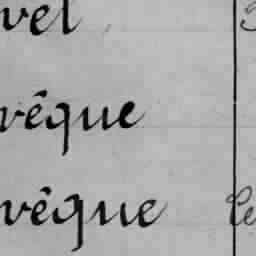 vel
vêque
vêque